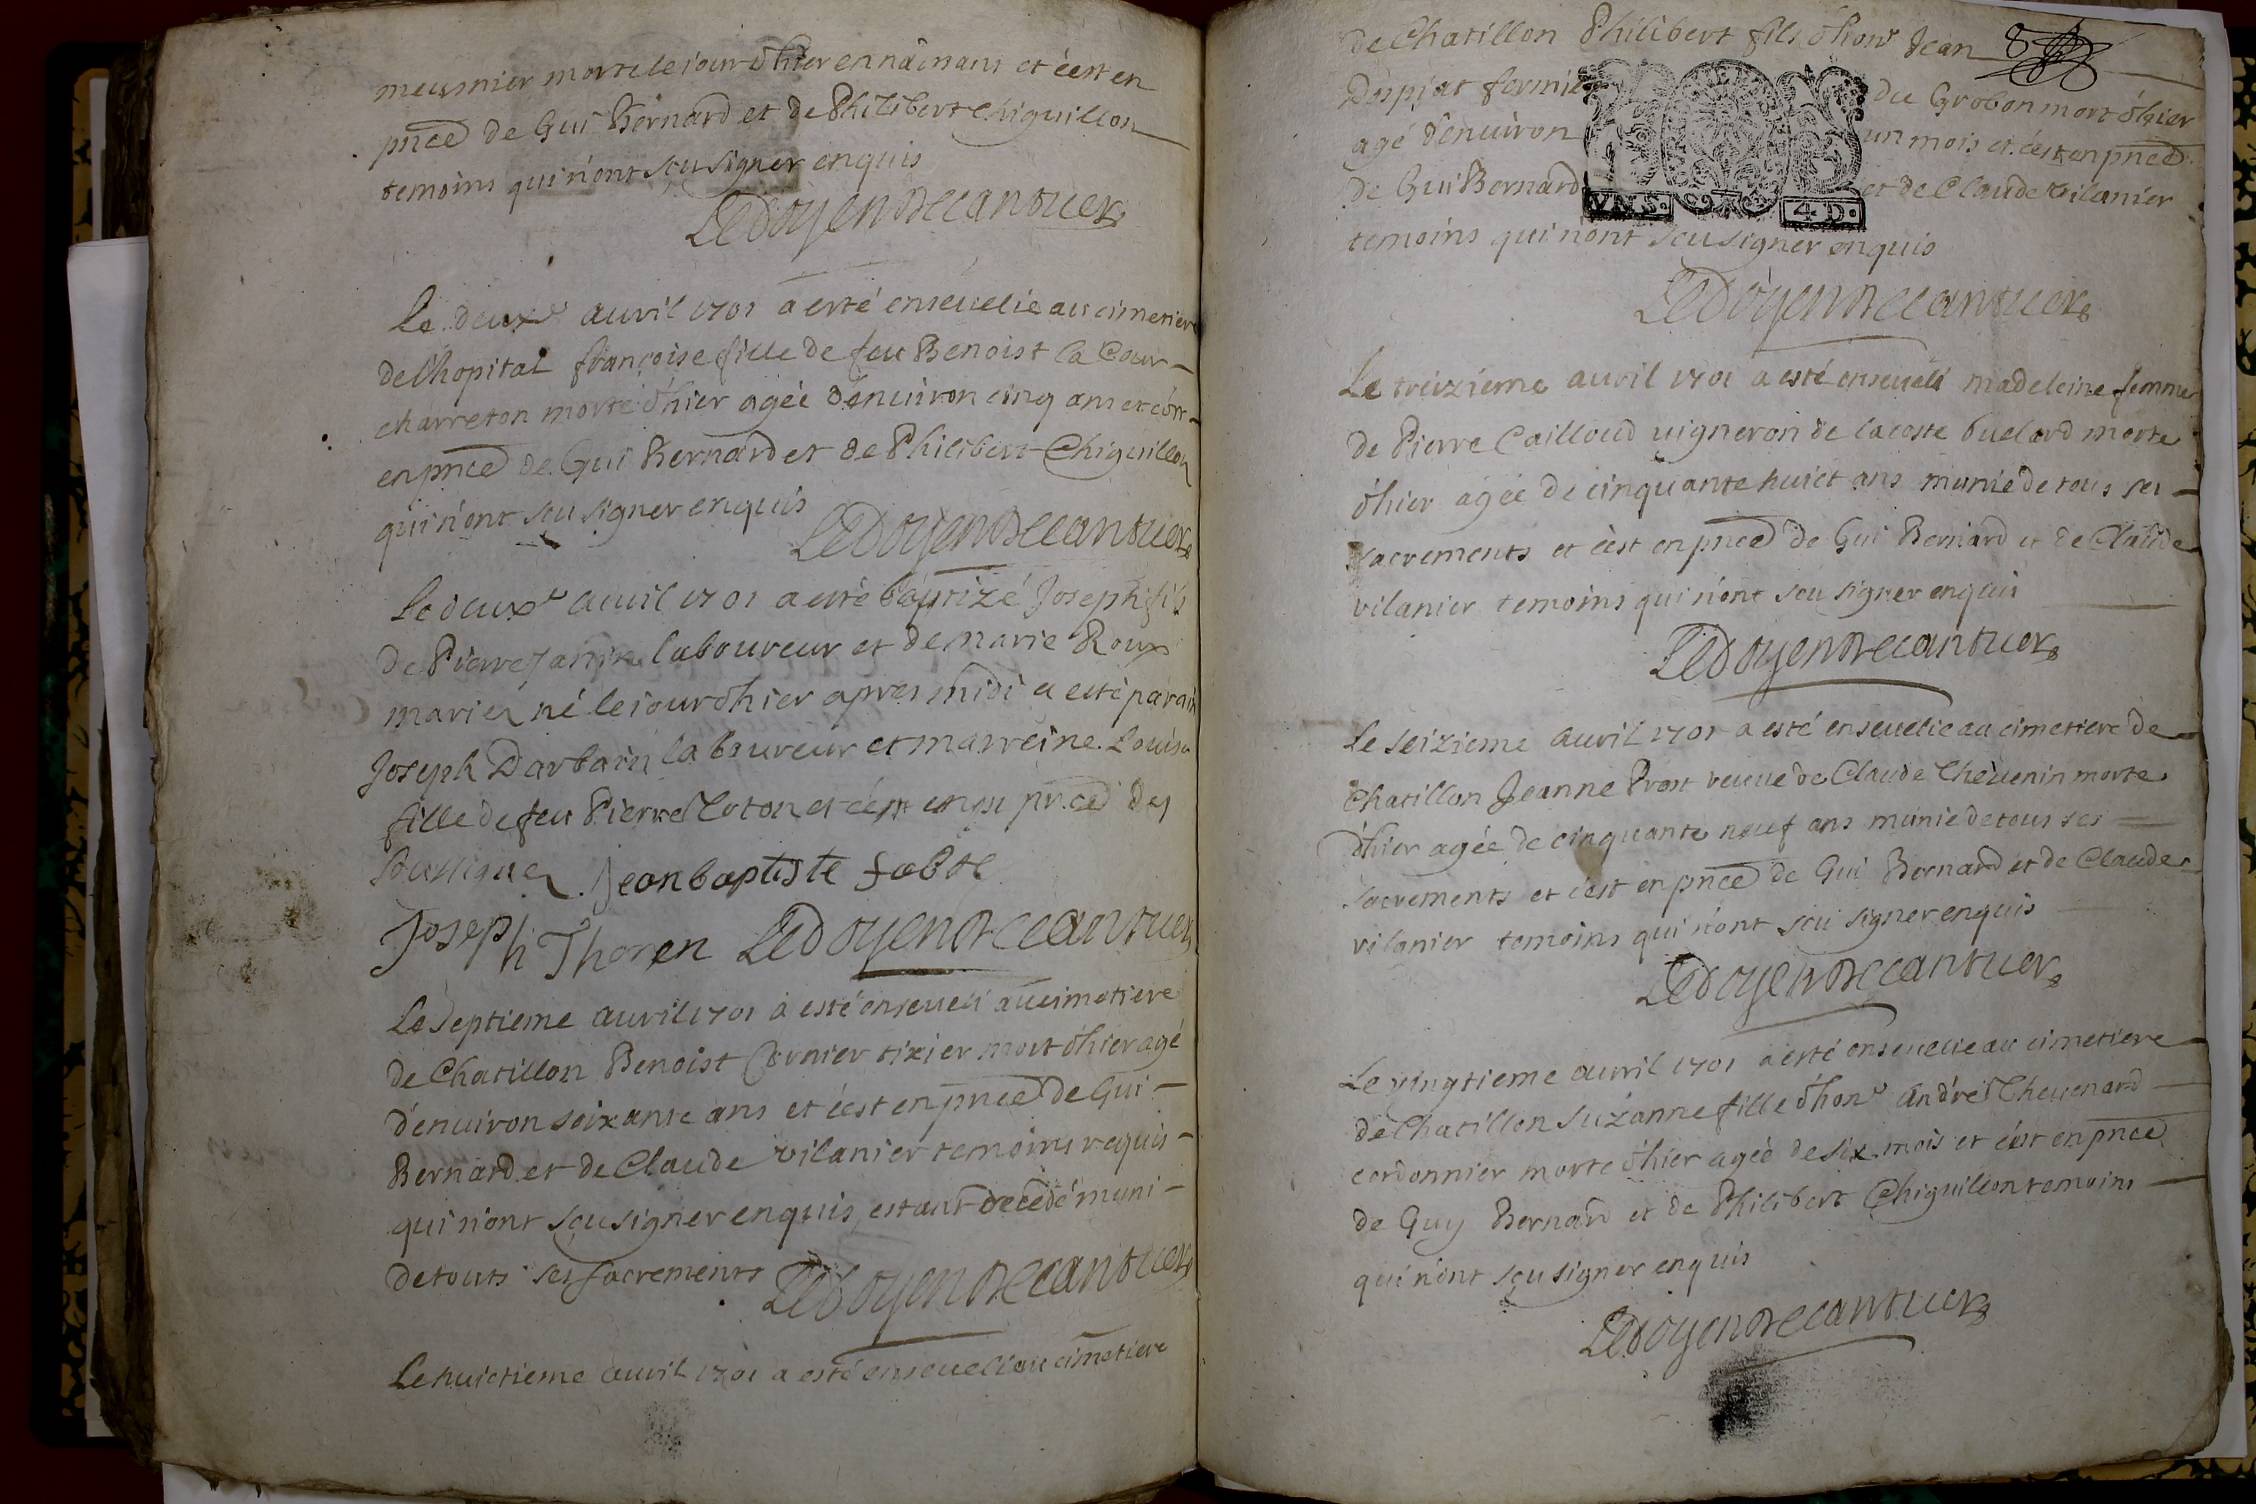 meusnier morte le iour d'hier en naissans et c'est en
pnce de Gui Bernard et de Philibert Chiquillon
temoins qui n'ont sçu signer enquis
Ledoyen Decantuer
Le deuxe auvril 1701 a esté ensevelie au cimetiere
de l'hopital françoise fille de feu Benoist la Cour
charreton morte d'hier agée d'environ cinq ans et c'est
en pnce de Gui Bernard et de Philibert Chiquillon
qui n'ont sçu signer enquis
Ledoyen Decantuer
Le deuxe auvril 1701 a esté baptizé Joseph fils
de Pierre Janin laboureur et de marie Roux
mariez né le iour d'hier apres midi a esté parain
Joseph Darbain laboureur et marreine Louise
fille de feu Pierre Coton et c'est en pnce des
soussignez Jean baptiste fabre
Joseph Thoren Ledoyen Decantuer
Le septieme auvril 1701 a esté enseveli au cimetiere
de Chatillon Benoist Cornier tixier mort d'hier agé
d'environ soixante ans et c'est en pnce de Gui
Bernard et de Claude vilanier temoins requis
qui n'ont sçu signer enquis, estant decedé muni
de touts ses sacrements Ledoyen Decantuer
Le huictieme auvril 1701 a esté enseveli au cimetiere
8
de Chatillon Philibert fils d'honr Jean
Despiat fermier du Grobon mort d'hier
agé d'environ un mois et c'est en pnce
de Gui Bernard et de Claude vilanier
VNS. 4 D.
temoins qui n'ont sçu signer enquis
Ledoyen Decantuer
Le treizieme auvril 1701 a esté enseveli madeleine femme
de Pierre Cailloud vigneron de la coste buelard morte
d'hier agée de cinquante huict ans munie de tous ses
sacrements et c'est en pnce de Gui Bernard et de Claude
vilanier temoins qui n'ont sçu signer enquis
Ledoyen Decantuer
Le seizieme auvril 1701 a esté ensevelie au cimetiere de
Chatillon Jeanne Prost veuve de Claude Thevenin morte
d'hier agée de cinquante neuf ans munie de tous ses
sacrements et c'est en pnce de Gui Bernard et de Claude
vilanier temoins qui n'ont sçu signer enquis
Ledoyen Decantuer
Le vingtieme auvril 1701 a esté ensevelie au cimetiere
de Chatillon Suzanne fille d'honr André Thevenard
cordonnier morte d'hier agée de six mois et c'est en pnce
de Guy Bernard et de Philibert Chiquillon temoins
qui n'ont sçu signer enquis
Ledoyen Decantuer